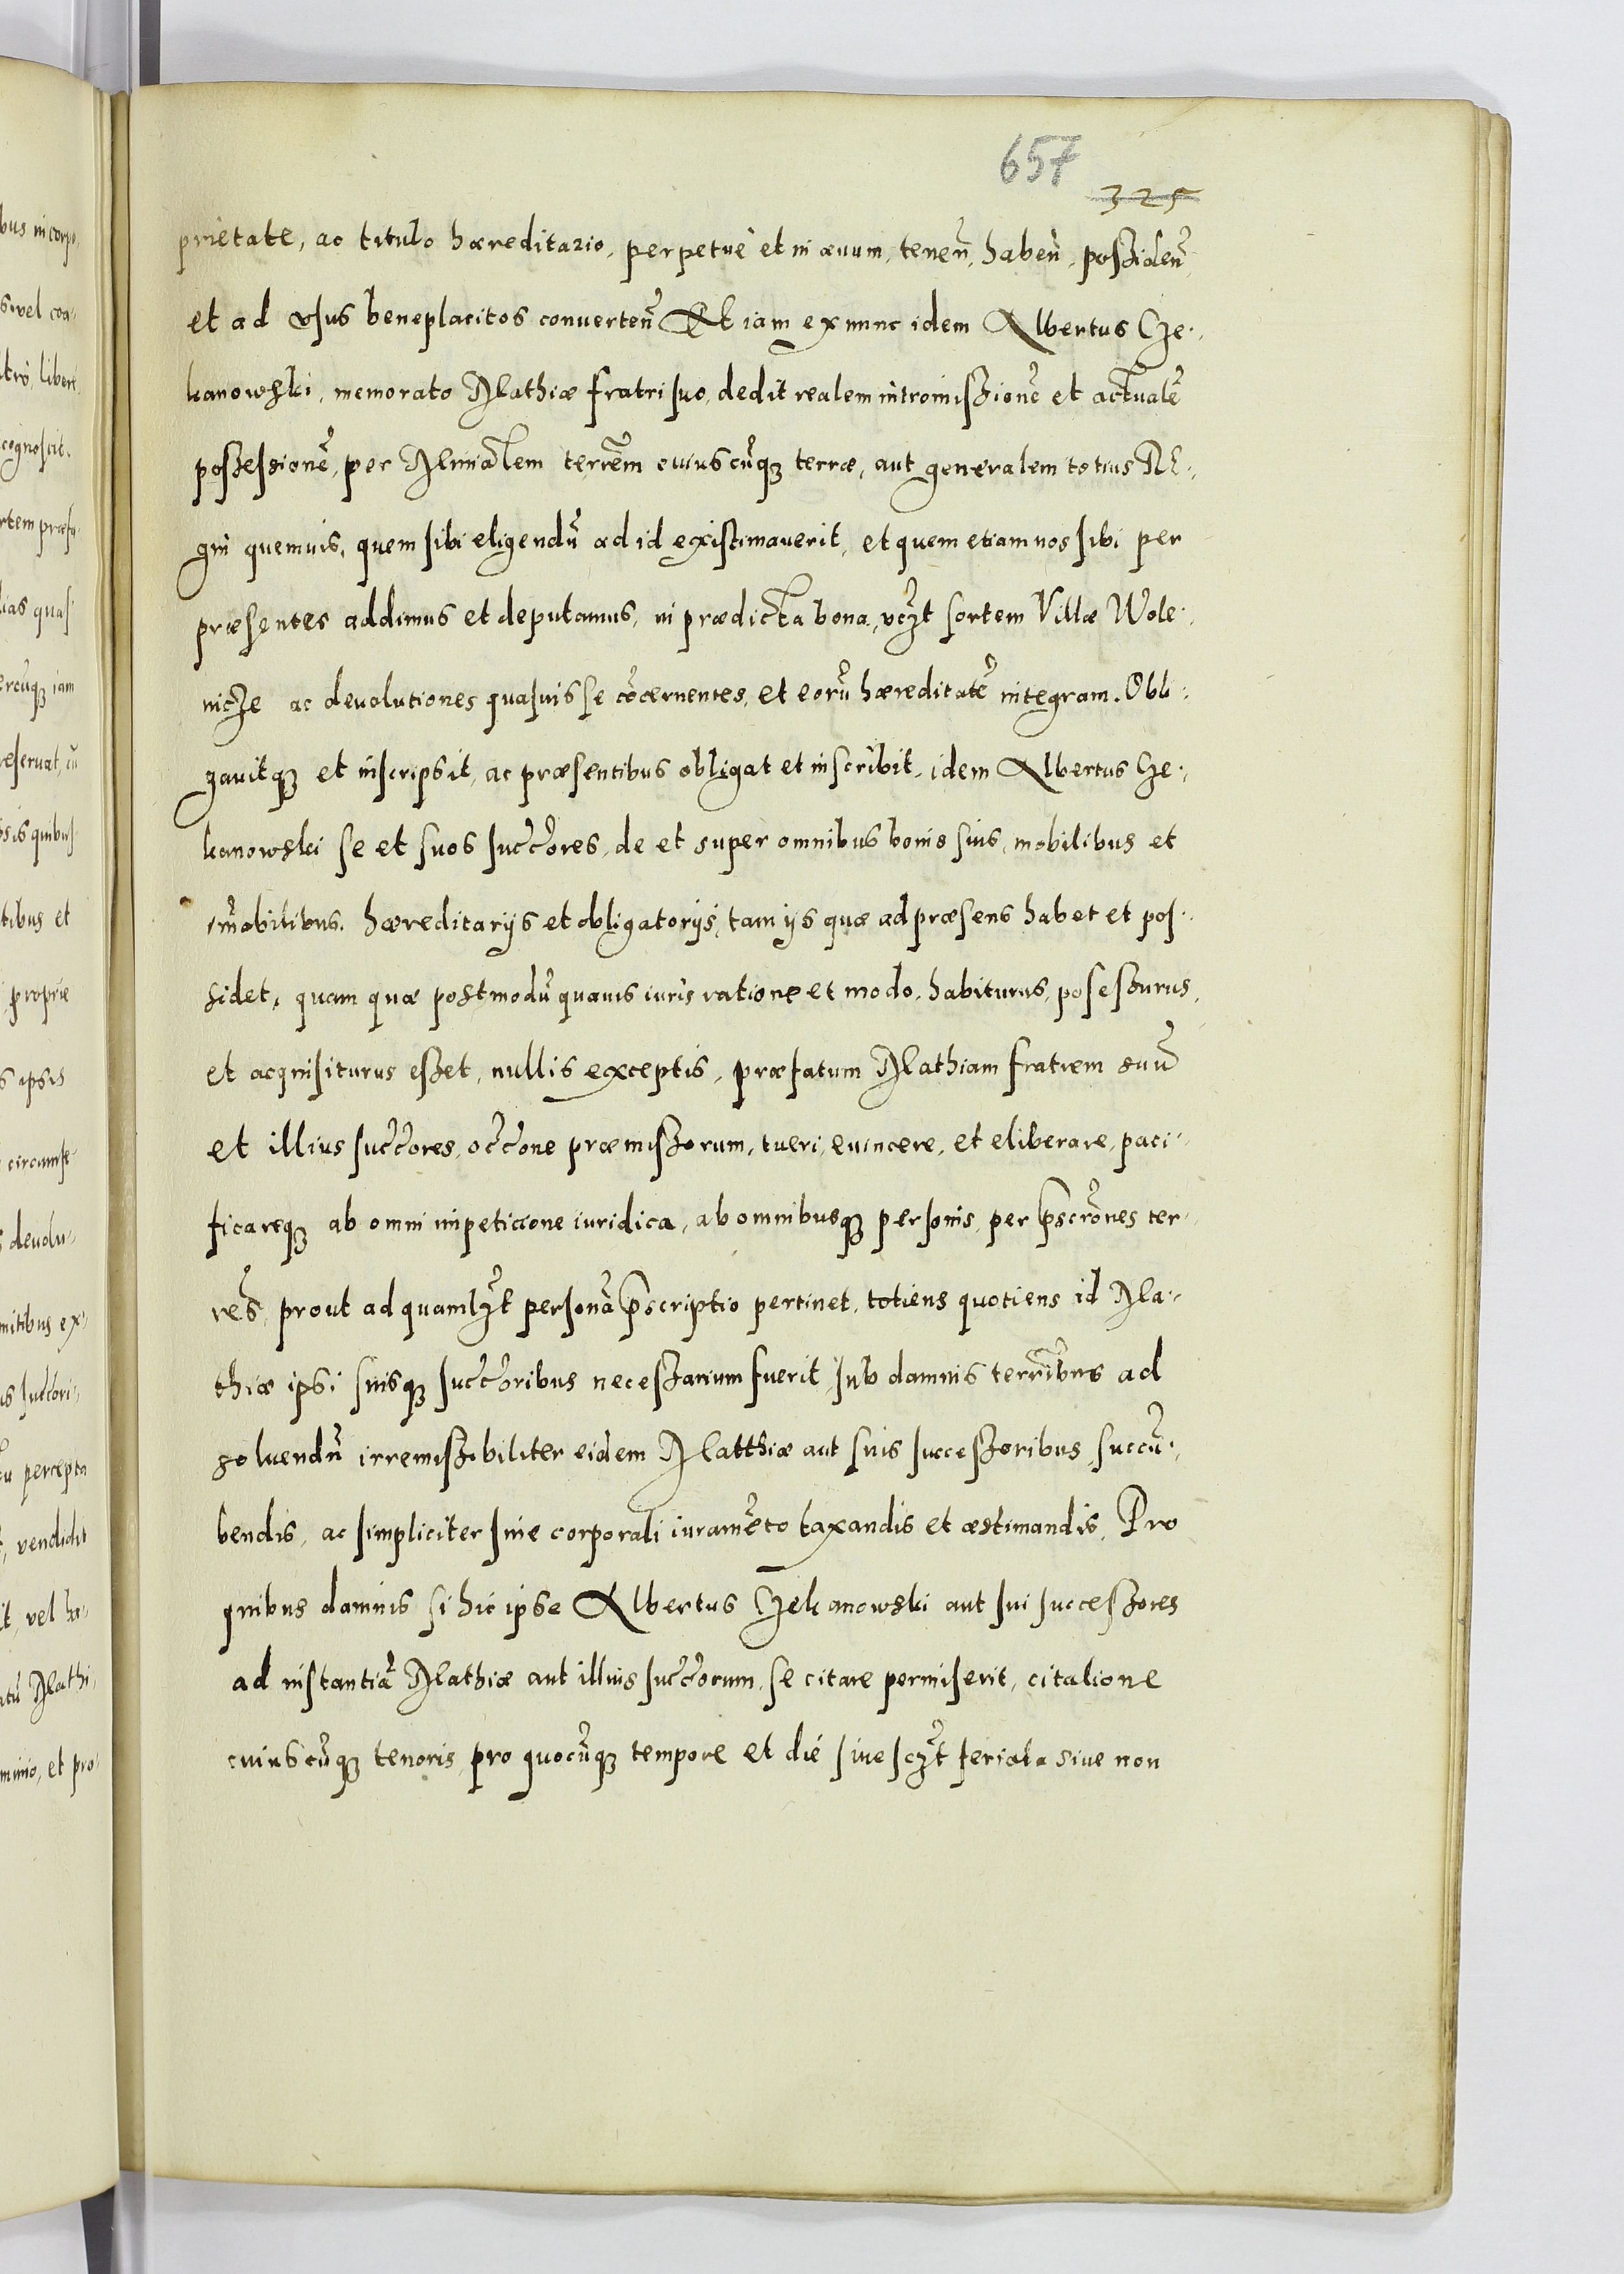 657
325
prietate, ac titulo hæreditario, perpetuè et in æuum, teneñ, habeñ, possideñ,
et ad vsus beneplacitos conuerteñ Et iam ex nunc idem Albertus Cze-
kanowski, memorato Mathiæ fratri suo, dedit realem intromissionẽ et actualẽ
possessionẽ, per Mĩnialem terr̃em cuiuscũqȝ terræ, aut generalem totius RE-
gni quemuis, quem sibi eligendũ ad id existimauerit, et quem etiam nos sibi per
præsentes addimus et deputamus, in prædicta bona, vczt sortem Villæ Wole-
nicze ac deuolutiones quasuis se cõcernentes, et eorũ hæreditatẽ integram. Obli-
gauitqȝ et inscripsit, ac præsentibus obligat et inscribit, idem Albertus Cze-
kanowski se et suos succ̃ores, de et super omnibus bonis suis, mobilibus et
im̃obilibus, hæreditarijs et obligatorijs, tam ijs quæ ad præsens habet et pos-
sidet, quam quæ postmodũ quauis iuris ratione et modo, habiturus, possessurus,
et acquisiturus esset, nullis exceptis, præfatum Mathiam fratrem suũ
et illius succ̃ores, occ̃one præmissorum, tueri, euincere, et eliberare, paci-
ficareqȝ ab omni impeticione iuridica, ab omnibusqȝ personis, per pscrõnes ter-
res̃, prout ad quamlzt personã pscriptio pertinet, totiens quotiens id Ma-
thiæ ipsi suisqȝ succ̃oribus necessarium fuerit, sub damnis terr̃ibus ad
soluendũ irremissibiliter eidem Matthiæ aut suis successoribus, succũ-
bendis, ac simpliciter sine corporali iuramẽto taxandis et æstimandis, Pro
quibus damnis si hic ipse Albertus Czekanowski aut sui successores
ad instantiã Mathiæ aut illius succ̃orum, se citare permiserit, citatione
cuiuscũqȝ tenoris, pro quocũqȝ tempore et die siue sczt feriata siue non